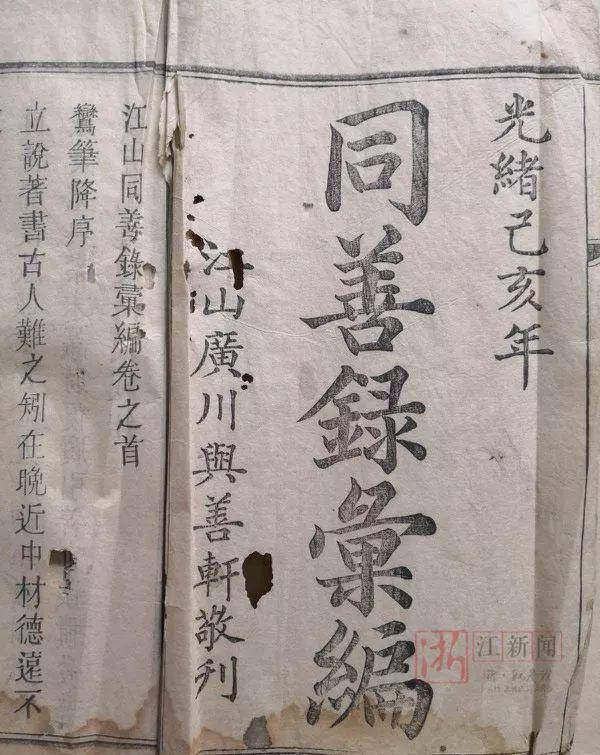 光緒己亥年
同善録彙編
江山廣川與善軒敬刋
江山同善錄彙編卷之首
鸞筆降序
立說著書古人難之矧在晚近中材德遠不
浙江新闻